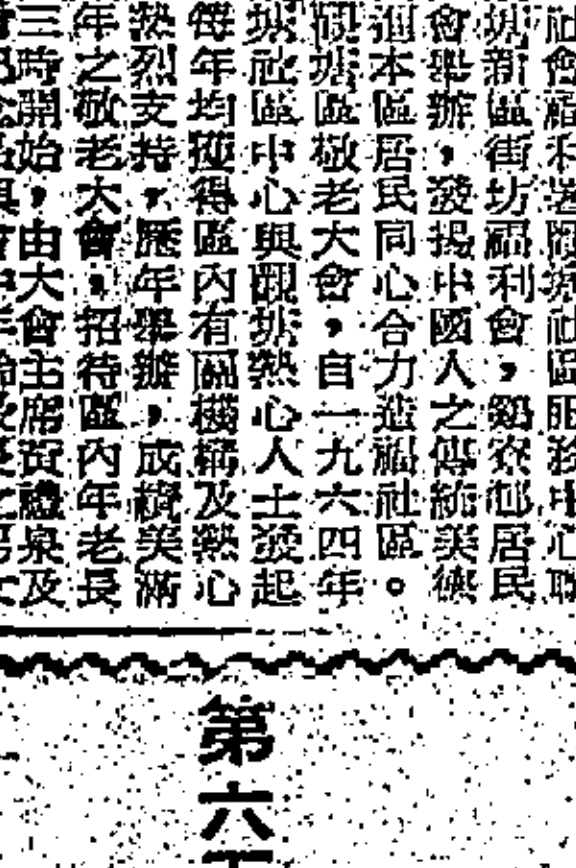 社會福利署觀塘社區服務中心聯
塘新區街坊福利會，鷄寮邨居民
會舉辦，發揚中國人之傳統美德
本區居民同心合力造福社區。
觀塘區敬老大會，自一九六四年
塘社區中心與觀塘熱心人士發起
每年均獲得區內有關機構及熱心
熱烈支持，歷年舉辦，成績美滿
年之敬老大會，招待區內年老長
三時開始，由大會主席黃禮泉及
第六